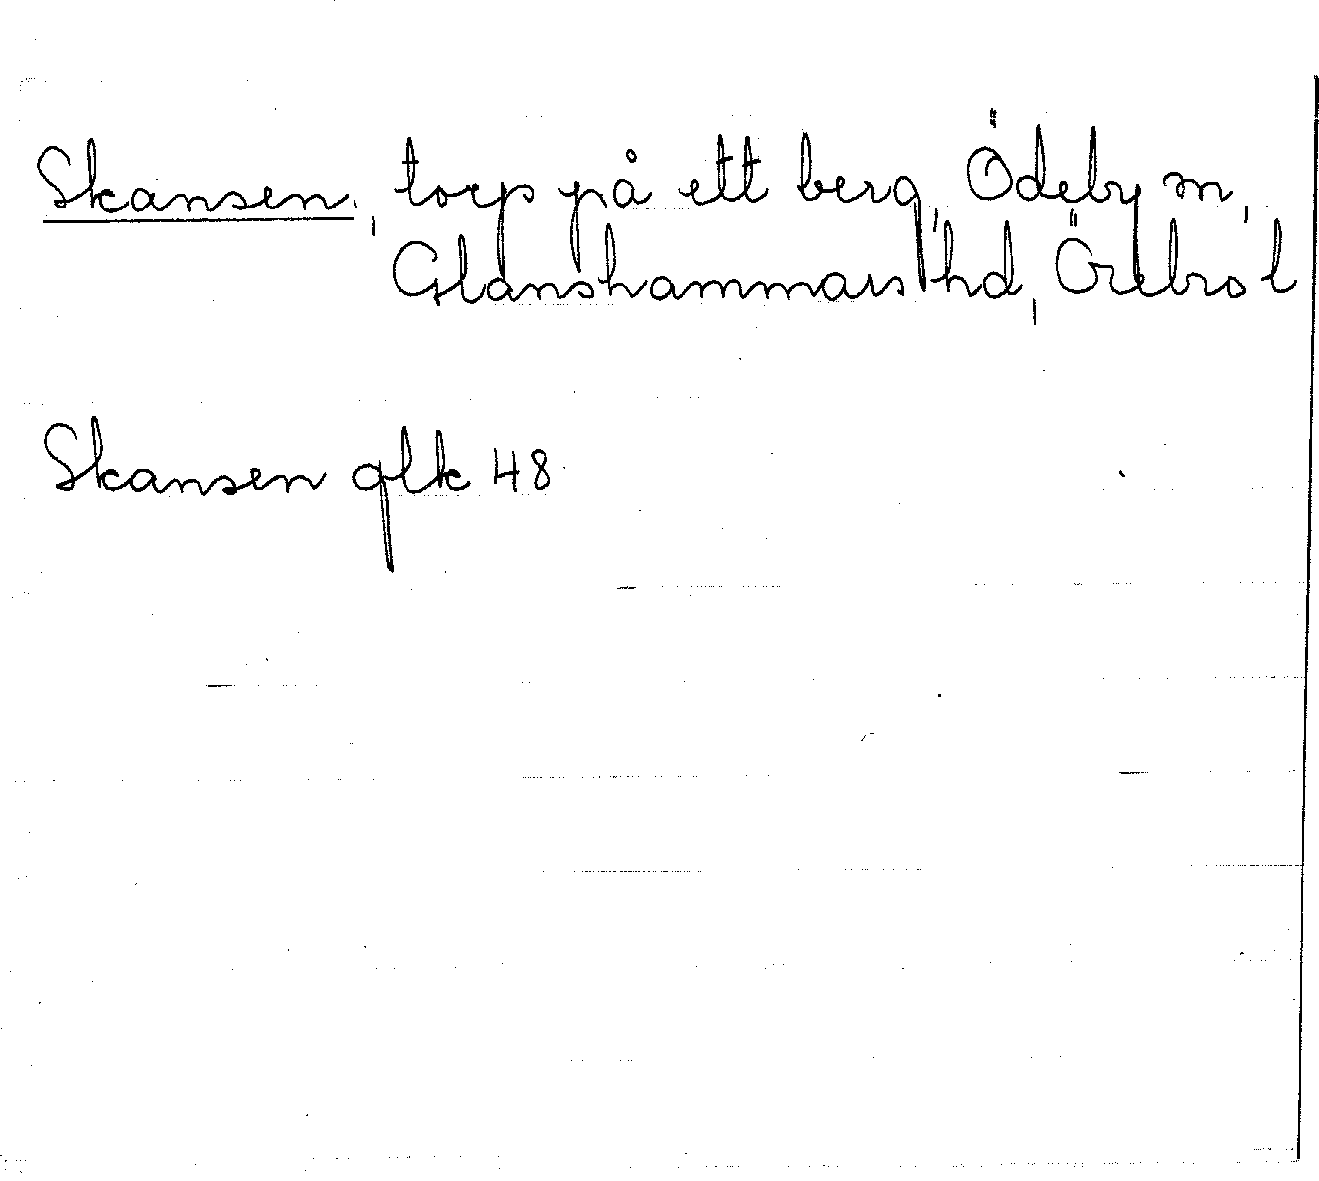 Skansen, torp på ett berg, Ödeby sn,
Glanshammars hd, Örebro l
Skansen glk 48